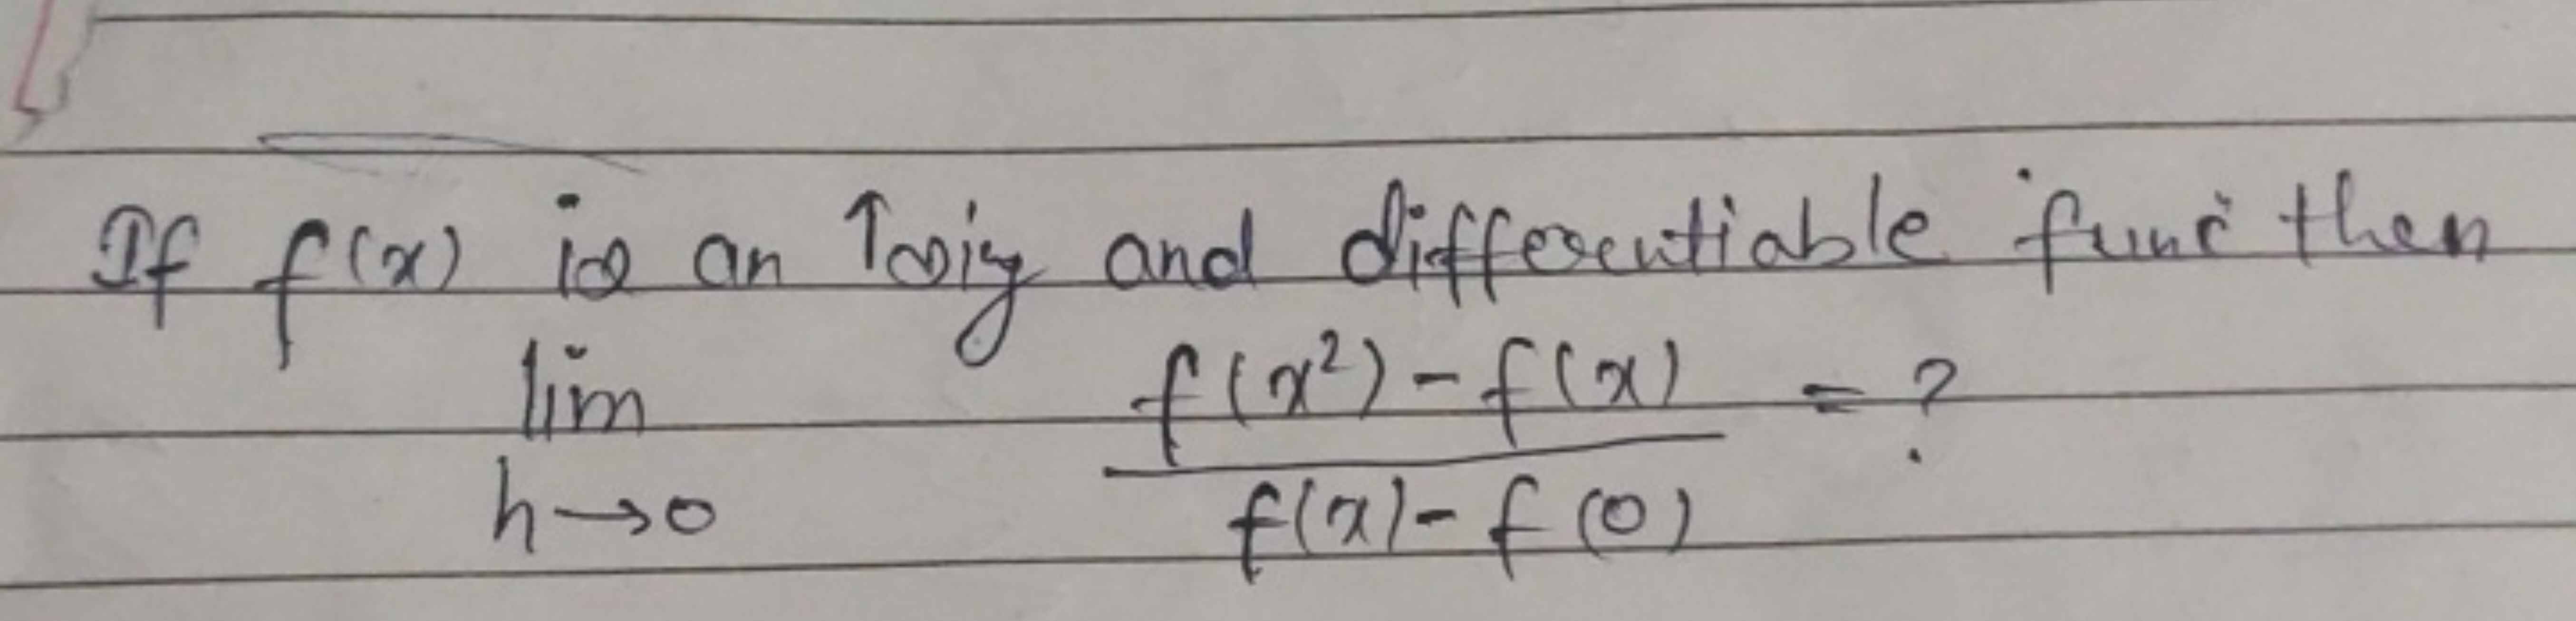 If f(x) is an ↑sing and differentiable func then
lim f(x²) - f(x) = ?
h→0 f(x) - f(0)